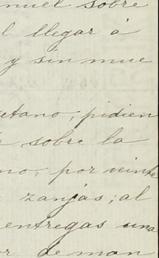 nuel sobre
l llegar á
y sin mue
utano, pidien
sobre la
no, por veinte
zanjas; al
entregas una
r deman